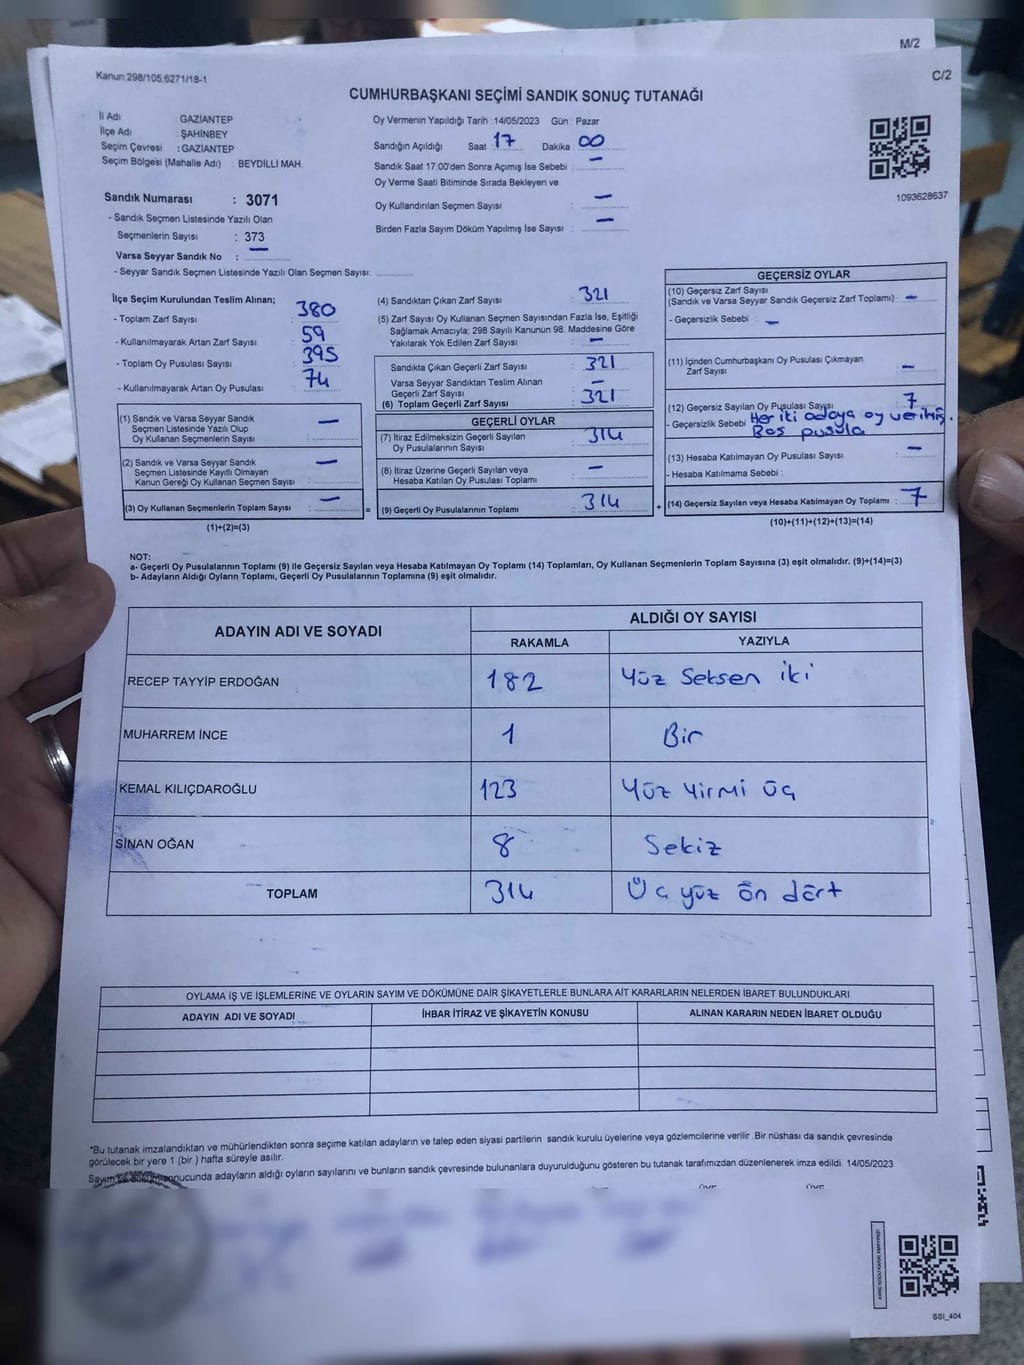 M/2
Kanun:298/105,6271/18-1
C/2
CUMHURBAŞKANI SEÇİMİ SANDIK SONUÇ TUTANAĞI
İl Adı GAZİANTEP
İlçe Adı : ŞAHİNBEY
Seçim Çevresi : GAZİANTEP
Seçim Bölgesi (Mahalle Adı) : BEYDİLLİ MAH.
Sandık Numarası : 3071
- Sandık Seçmen Listesinde Yazılı Olan
Seçmenlerin Sayısı : 373
Varsa Seyyar Sandık No : —
- Seyyar Sandık Seçmen Listesinde Yazılı Olan Seçmen Sayısı:
Oy Vermenin Yapıldığı Tarih :14/05/2023 Gün : Pazar
Sandığın Açıldığı Saat : 17 Dakika : 00
Sandık Saat 17:00'den Sonra Açımış İse Sebebi : —
Oy Verme Saati Bitiminde Sırada Bekleyen ve
Oy Kullandırılan Seçmen Sayısı : —
Birden Fazla Sayım Döküm Yapılmış İse Sayısı : —
1093628637
İlçe Seçim Kurulundan Teslim Alınan;
- Toplam Zarf Sayısı : 380
- Kullanılmayarak Artan Zarf Sayısı : 59
- Toplam Oy Pusulası Sayısı : 395
- Kullanılmayarak Artan Oy Pusulası : 74
(1) Sandık ve Varsa Seyyar Sandık
Seçmen Listesinde Yazılı Olup
Oy Kullanan Seçmenlerin Sayısı : —
(2) Sandık ve Varsa Seyyar Sandık
Seçmen Listesinde Kayıtlı Olmayan
Kanun Gereği Oy Kullanan Seçmen Sayısı : —
(3) Oy Kullanan Seçmenlerin Toplam Sayısı : —
(1)+(2)=(3)
(4) Sandıktan Çıkan Zarf Sayısı : 321
(5) Zarf Sayısı Oy Kullanan Seçmen Sayısından Fazla İse, Eşitliği
Sağlamak Amacıyla; 298 Sayılı Kanunun 98. Maddesine Göre
Yakılarak Yok Edilen Zarf Sayısı : —
Sandıkta Çıkan Geçerli Zarf Sayısı : 321
Varsa Seyyar Sandıktan Teslim Alınan
Geçerli Zarf Sayısı : —
(6) Toplam Geçerli Zarf Sayısı : 321
GEÇERLİ OYLAR
(7) İtiraz Edilmeksizin Geçerli Sayılan
Oy Pusulalarının Sayısı : 314
(8) İtiraz Üzerine Geçerli Sayılan veya
Hesaba Katılan Oy Pusulası Toplamı : —
= (9) Geçerli Oy Pusulalarının Toplamı : 314 +
GEÇERSİZ OYLAR
(10) Geçersiz Zarf Sayısı
(Sandık ve Varsa Seyyar Sandık Geçersiz Zarf Toplamı) : —
- Geçersizlik Sebebi : —
(11) İçinden Cumhurbaşkanı Oy Pusulası Çıkmayan
Zarf Sayısı : —
(12) Geçersiz Sayılan Oy Pusulası Sayısı : 7
- Geçersizlik Sebebi : Her iki adaya oy verilmiş.
Boş pusula
(13) Hesaba Katılmayan Oy Pusulası Sayısı : —
- Hesaba Katılmama Sebebi :
(14) Geçersiz Sayılan veya Hesaba Katılmayan Oy Toplamı : 7
(10)+(11)+(12)+(13)=(14)
NOT:
a- Geçerli Oy Pusulalarının Toplamı (9) ile Geçersiz Sayılan veya Hesaba Katılmayan Oy Toplamı (14) Toplamları, Oy Kullanan Seçmenlerin Toplam Sayısına (3) eşit olmalıdır. (9)+(14)=(3)
b- Adayların Aldığı Oyların Toplamı, Geçerli Oy Pusulalarının Toplamına (9) eşit olmalıdır.
ADAYIN ADI VE SOYADI ALDIĞI OY SAYISI
RAKAMLA YAZIYLA
RECEP TAYYİP ERDOĞAN 182 Yüz Seksen iki
MUHARREM İNCE 1 Bir
KEMAL KILIÇDAROĞLU 123 Yüz Yirmi üç
SİNAN OĞAN 8 Sekiz
TOPLAM 314 Üç yüz ön dört
OYLAMA İŞ VE İŞLEMLERİNE VE OYLARIN SAYIM VE DÖKÜMÜNE DAİR ŞİKAYETLERLE BUNLARA AİT KARARLARIN NELERDEN İBARET BULUNDUKLARI
ADAYIN ADI VE SOYADI İHBAR İTİRAZ VE ŞİKAYETİN KONUSU ALINAN KARARIN NEDEN İBARET OLDUĞU
*Bu tutanak imzalandıktan ve mühürlendikten sonra seçime katılan adayların ve talep eden siyasi partilerin sandık kurulu üyelerine veya gözlemcilerine verilir .Bir nüshası da sandık çevresinde
görülecek bir yere 1 (bir ) hafta süreyle asılır.
Sayım ve döküm sonucunda adayların aldığı oyların sayılarını ve bunların sandık çevresinde bulunanlara duyurulduğunu gösteren bu tutanak tarafımızdan düzenlenerek imza edildi. 14/05/2023
SSI_404